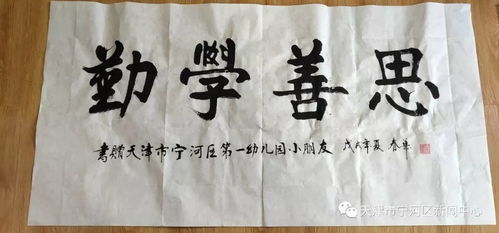 勤學善思
書贈天津市宁河区第一幼儿园小朋友 戊戌年夏 春华
天津市宁河区新闻中心